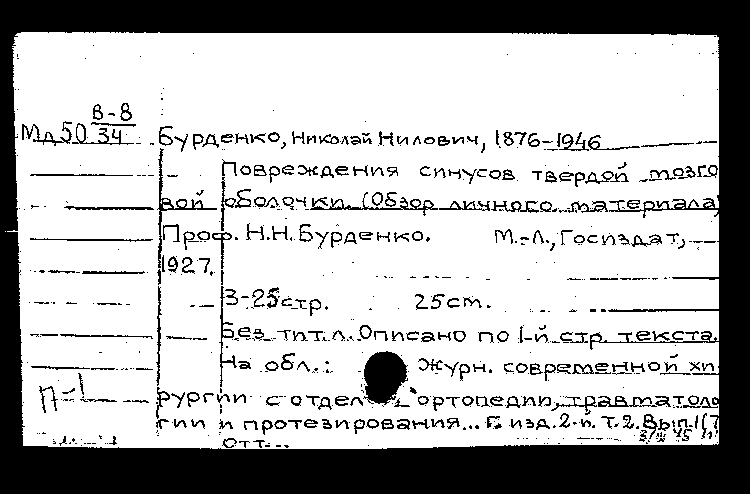 В-8
Мд50 34 Бурденко, Николай Нилович, 1876-1946
Повреждения синусов твердой мозго
вой оболочки. (Обзор личного материала)
Проф. Н.Н. Бурденко. М.-Л., Госиздат,
1927.
3-25 стр. 25 cm.
Без тит.л. Описано по 1-й стр. текста.
На обл.: Журн. современной хи
П-1
рургии с отдел ортопедии, травматоло
гии и протезирования... Г. изд. 2-й. Т.2. Вып.1(7
Отт...